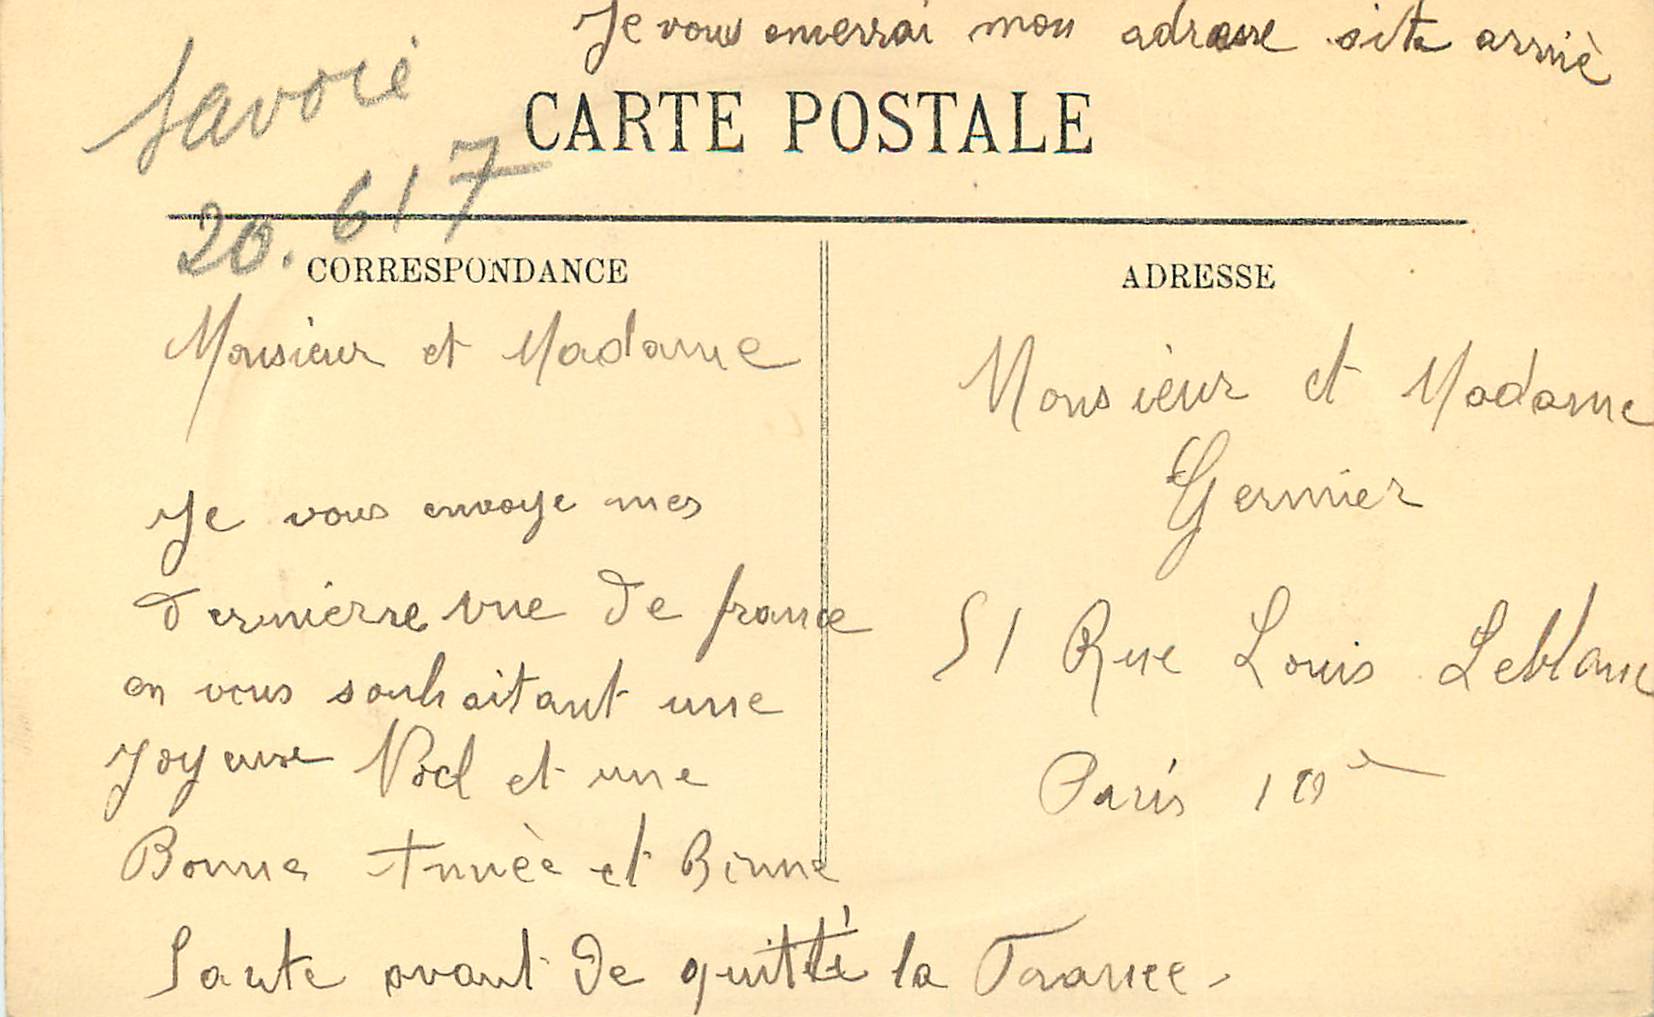 Je vous enverrai mon adresse site arriè
Savoie
20. 617
CARTE POSTALE
CORRESPONDANCE
Monsieur et Madame
Je vous envoye mes
dernièrre vue de france
en vous souhaitant une
Joyeuse Noel et une
Bonne Annèe et Binne
Sante avant de quitté la France.
ADRESSE
Monsieur et Madame
Germier
51 Rue Louis Leblanc
Paris 10e